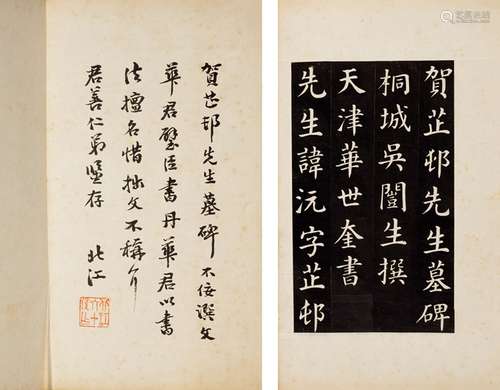 賀芷邨先生墓碑不佞譔文
華君璧臣書丹華君以書
法擅名惜拙文不稱尒
君善仁弟鑒存 北江
賀芷邨先生墓碑
桐城吳闓生撰
天津華世奎書
先生諱沅字芷邨